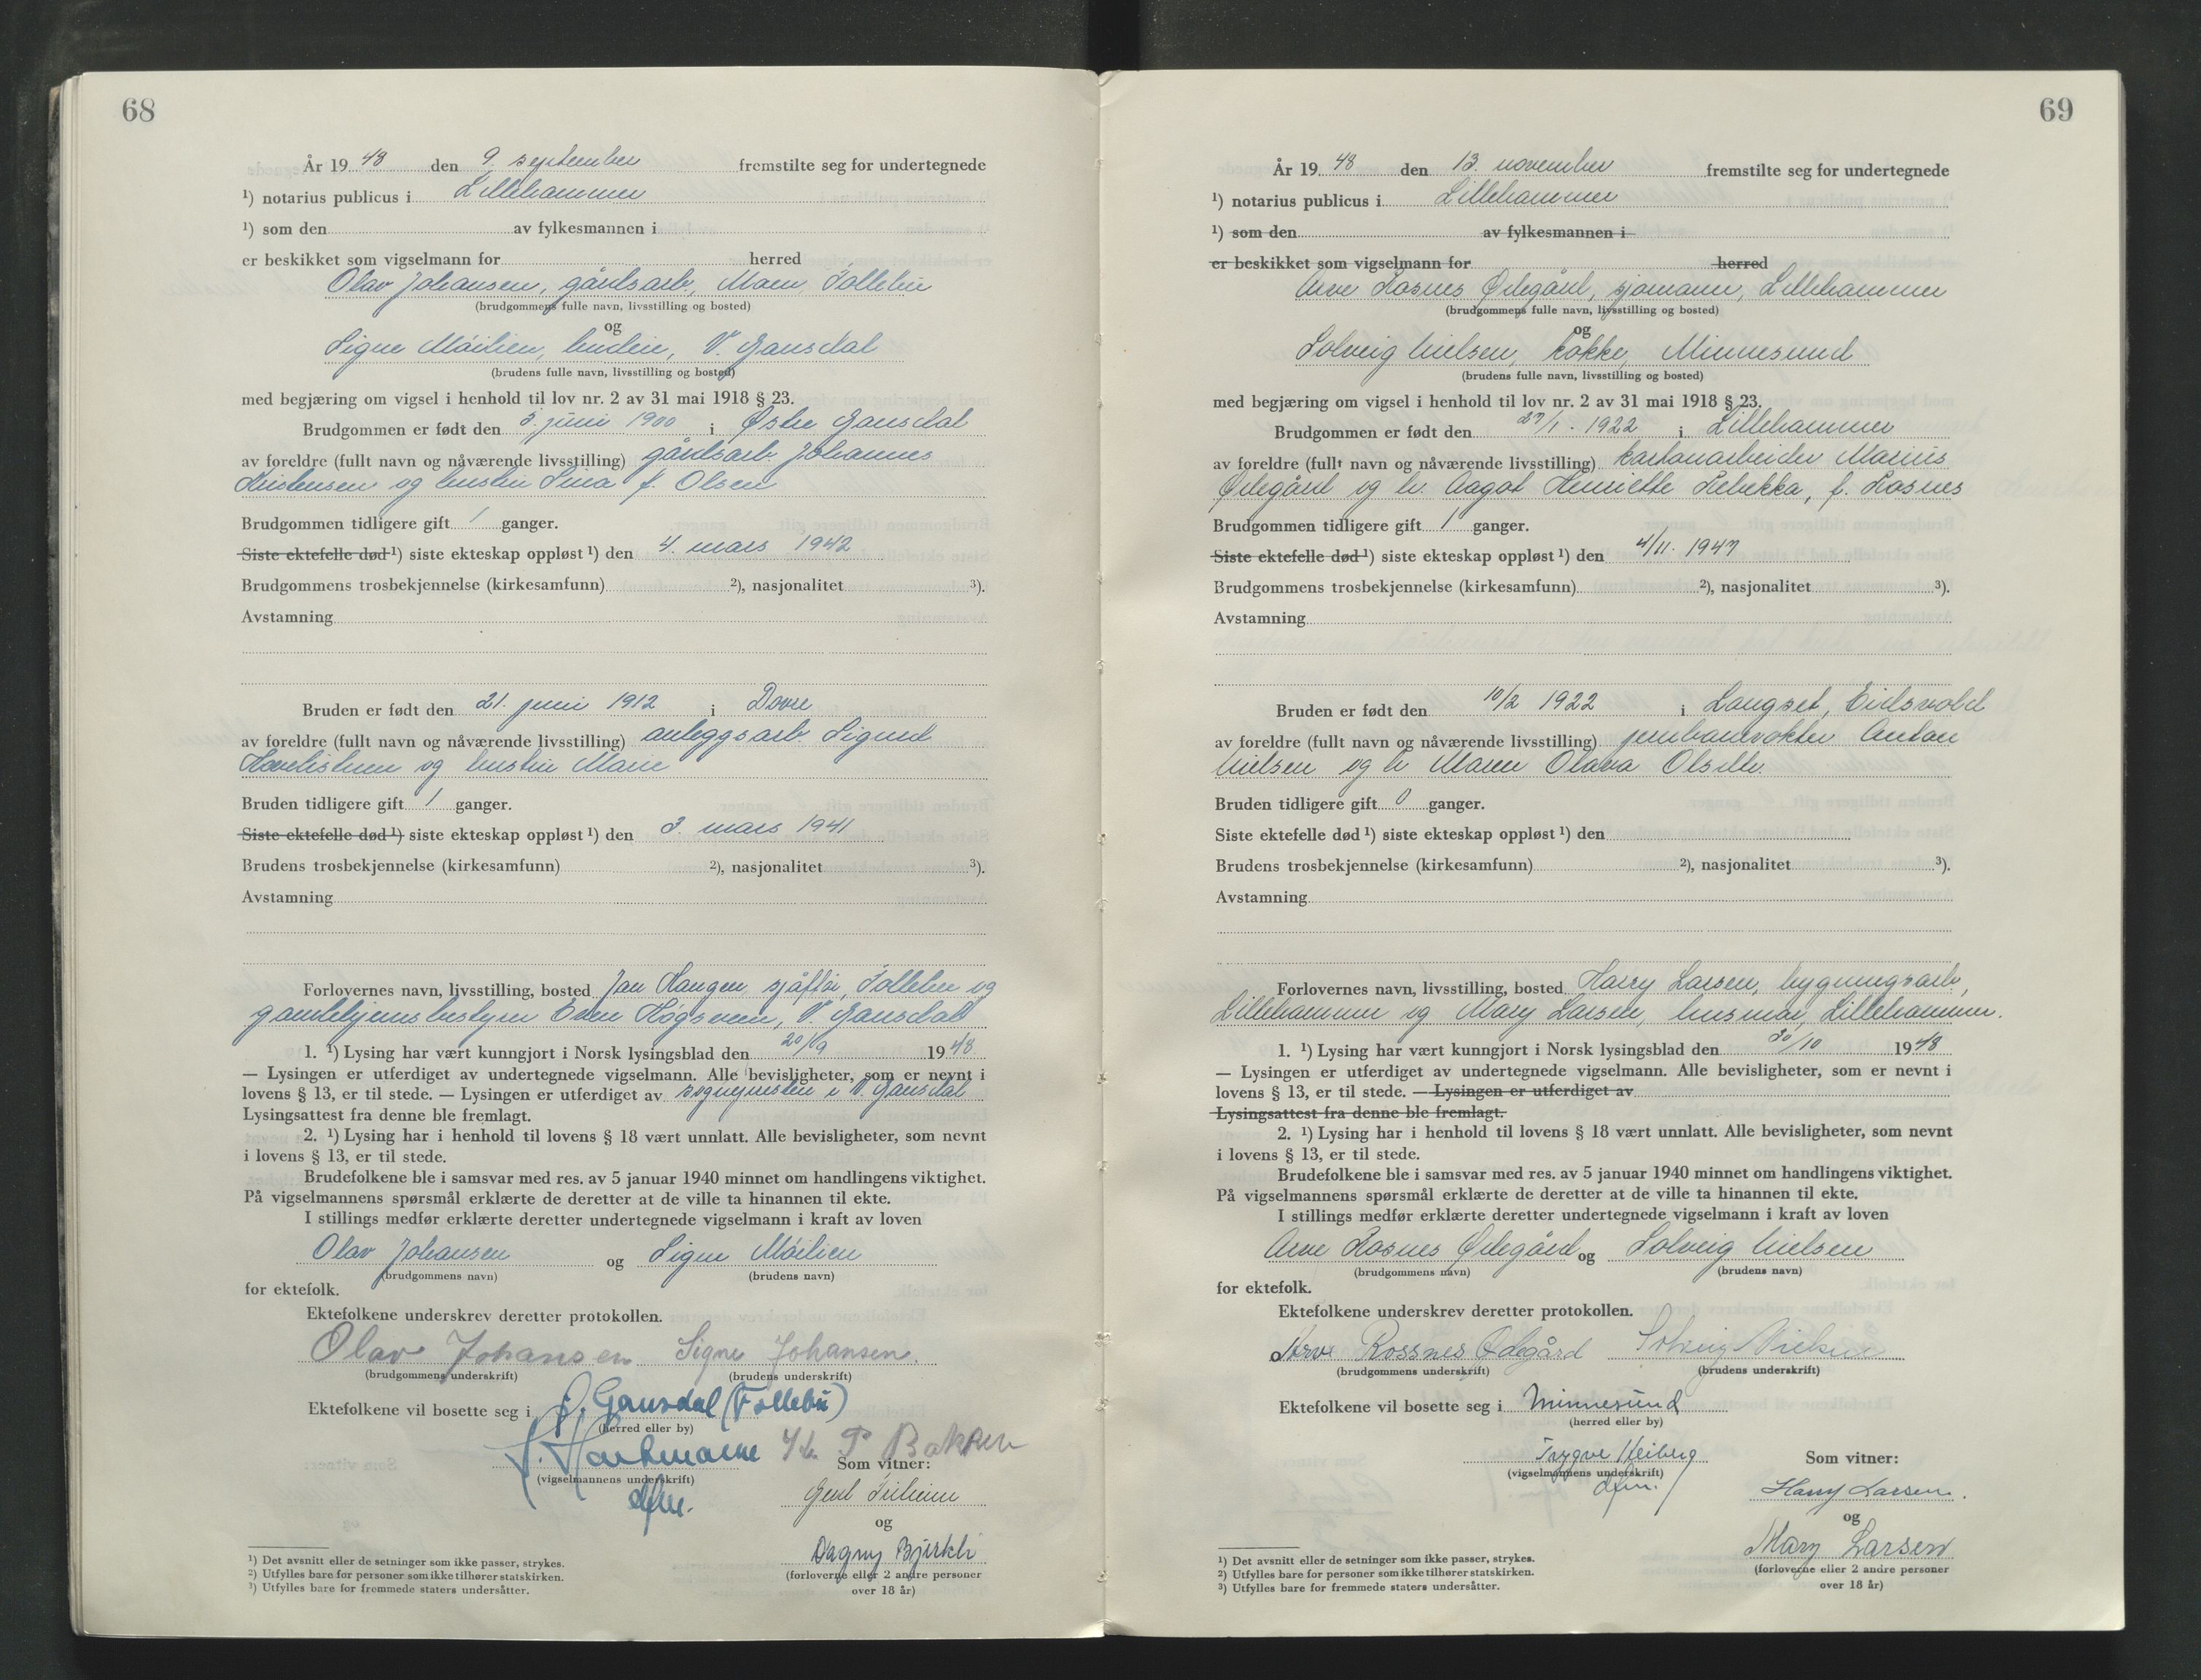 68
År 19 48 den 9. september fremstilte seg for undertegnede
¹) notarius publicus i Lillehammer
¹) som den av fylkesmannen i
er beskikket som vigselmann for herred
Olav Johansen, gårdsarb., Follebu
(brudgommens fulle navn, livsstilling og bosted)
og
Signe Moilien, budeie, V. Gausdal
(brudens fulle navn, livsstilling og bosted)
med begjæring om vigsel i henhold til lov nr. 2 av 31 mai 1918 § 23.
Brudgommen er født den juni 1900 i Østre Gausdal
av foreldre (fullt navn og nåværende livsstilling) gårdsarb. Johannes
Kristensen og hustru f. Olsen
Brudgommen tidligere gift 1 ganger.
Siste ektefelle død ¹) siste ekteskap oppløst ¹) den 4. mars 1942
Brudgommens trosbekjennelse (kirkesamfunn) ²), nasjonalitet ³).
Avstamning
Bruden er født den 21. juni 1912 i Dovre
av foreldre (fullt navn og nåværende livsstilling) anleggsarb. Sigurd
og hustru Marie
Bruden tidligere gift 1 ganger.
Siste ektefelle død ¹) siste ekteskap oppløst ¹) den 3. mars 1941
Brudens trosbekjennelse (kirkesamfunn) ²), nasjonalitet ³).
Avstamning
Forlovernes navn, livsstilling, bosted Jan Haugen sjåfør, Follebu og
gamlehjemsbestyrer Even Høgsveen, V. Gausdal
1. ¹) Lysing har vært kunngjort i Norsk lysingsblad den 1948
— Lysingen er utferdiget av undertegnede vigselmann. Alle bevisligheter, som er nevnt i
lovens § 13, er til stede. — Lysingen er utferdiget av sognepresten i V. Gausdal
Lysingsattest fra denne ble fremlagt.
2. ¹) Lysing har i henhold til lovens § 18 vært unnlatt. Alle bevisligheter, som nevnt
i lovens § 13, er til stede.
Brudefolkene ble i samsvar med res. av 5 januar 1940 minnet om handlingens viktighet.
På vigselmannens spørsmål erklærte de deretter at de ville ta hinannen til ekte.
I stillings medfør erklærte deretter undertegnede vigselmann i kraft av loven
Olav Johansen og Signe Moilien
(brudgommens navn) (brudens navn)
for ektefolk.
Ektefolkene underskrev deretter protokollen.
Olav Johansen Signe Johansen.
(brudgommens underskrift) (brudens underskrift)
Ektefolkene vil bosette seg i Ø. Gausdal (Follebu)
(herred eller by)
P Bakken
(vigselmannens underskrift) Som vitner:
dfm.
og
Dagny Bjirkli
(forloverne eller 2 andre personer
over 18 år)
¹) Det avsnitt eller de setninger som ikke passer, strykes.
²) Utfylles bare for personer som ikke tilhører statskirken.
³) Utfylles bare for fremmede staters undersåtter.
69
År 19 48 den 13. november fremstilte seg for undertegnede
¹) notarius publicus i Lillehammer
¹) som den av fylkesmannen i
er beskikket som vigselmann for herred
Arve Rosnes Ødegård, sjømann, Lillehammer
(brudgommens fulle navn, livsstilling og bosted)
og
Solveig Nielsen, kokke, Minnesund
(brudens fulle navn, livsstilling og bosted)
med begjæring om vigsel i henhold til lov nr. 2 av 31 mai 1918 § 23.
Brudgommen er født den 27/1. 1922 i Lillehammer
av foreldre (fullt navn og nåværende livsstilling) kartonarbeider Marius
Ødegård og h. Aagot Henriette Rebekka, f. Rosnes
Brudgommen tidligere gift 1 ganger.
Siste ektefelle død ¹) siste ekteskap oppløst ¹) den 4/11. 1947
Brudgommens trosbekjennelse (kirkesamfunn) ²), nasjonalitet ³).
Avstamning
Bruden er født den 10/2 1922 i Langset, Eidsvold
av foreldre (fullt navn og nåværende livsstilling) jernbanevokter Anton
Nielsen og h. Maren Olava Olsdtr.
Bruden tidligere gift 0 ganger.
Siste ektefelle død ¹) siste ekteskap oppløst ¹) den
Brudens trosbekjennelse (kirkesamfunn) ²), nasjonalitet ³).
Avstamning
Forlovernes navn, livsstilling, bosted Harry Larsen, bygningsarb.,
Lillehammer og Mary Larsen, husmor, Lillehammer.
1. ¹) Lysing har vært kunngjort i Norsk lysingsblad den 30/10 1948
— Lysingen er utferdiget av undertegnede vigselmann. Alle bevisligheter, som er nevnt i
lovens § 13, er til stede. — Lysingen er utferdiget av
Lysingsattest fra denne ble fremlagt.
2. ¹) Lysing har i henhold til lovens § 18 vært unnlatt. Alle bevisligheter, som nevnt
i lovens § 13, er til stede.
Brudefolkene ble i samsvar med res. av 5 januar 1940 minnet om handlingens viktighet.
På vigselmannens spørsmål erklærte de deretter at de ville ta hinannen til ekte.
I stillings medfør erklærte deretter undertegnede vigselmann i kraft av loven
Arve Rosnes Ødegård og Solveig Nielsen
(brudgommens navn) (brudens navn)
for ektefolk.
Ektefolkene underskrev deretter protokollen.
Arve Rossnes Ødegård Solveig Nielsen
(brudgommens underskrift) (brudens underskrift)
Ektefolkene vil bosette seg i Minnesund
(herred eller by)
Trygve Heiberg
(vigselmannens underskrift) Som vitner:
dfm.
Harry Larsen.
og
Mary Larsen
(forloverne eller 2 andre personer
over 18 år)
¹) Det avsnitt eller de setninger som ikke passer, strykes.
²) Utfylles bare for personer som ikke tilhører statskirken.
³) Utfylles bare for fremmede staters undersåtter.